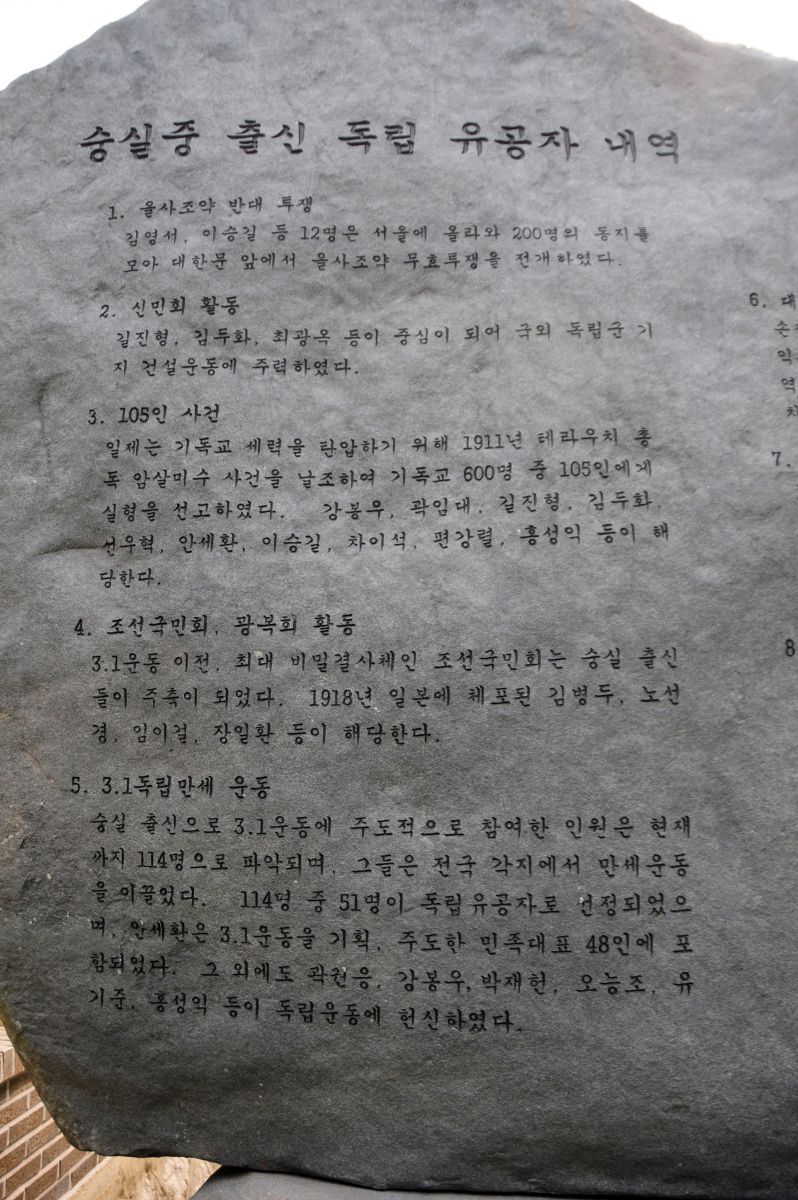 숭실중 출신 독립 유공자 내역
1. 을사조약 반대 투쟁
김영서, 이승길 등 12명은 서울에 올라와 200명의 동지를
모아 대한문 앞에서 을사조약 무효투쟁을 전개하였다.
2. 신민회 활동
길진형, 김두화, 최광옥 등이 중심이 되어 국외 독립군 기
지 건설운동에 주력하였다.
3. 105인 사건
일제는 기독교 세력을 탄압하기 위해 1911년 테라우치 총
독 암살미수 사건을 날조하여 기독교 600명 중 105인에게
실형을 선고하였다. 강봉우, 곽임대, 길진형, 김두화,
선우혁, 안세환, 이승길, 차이석, 편강렬, 홍성익 등이 해
당한다.
4. 조선국민회, 광복회 활동
3.1운동 이전, 최대 비밀결사체인 조선국민회는 숭실 출신
들이 주축이 되었다. 1918년 일본에 체포된 김병두, 노선
경, 임이걸, 장일환 등이 해당한다.
5. 3.1독립만세 운동
숭실 출신으로 3.1운동에 주도적으로 참여한 인원은 현재
까지 114명으로 파악되며, 그들은 전국 각지에서 만세운동
을 이끌었다. 114명 중 51명이 독립유공자로 선정되었으
며, 안세환은 3.1운동을 기획, 주도한 민족대표 48인에 포
함되었다. 그 외에도 곽권응, 강봉우, 박재헌, 오능조, 유
기준, 홍성익 등이 독립운동에 헌신하였다.
6. 대
손
익
역
차
7.
8